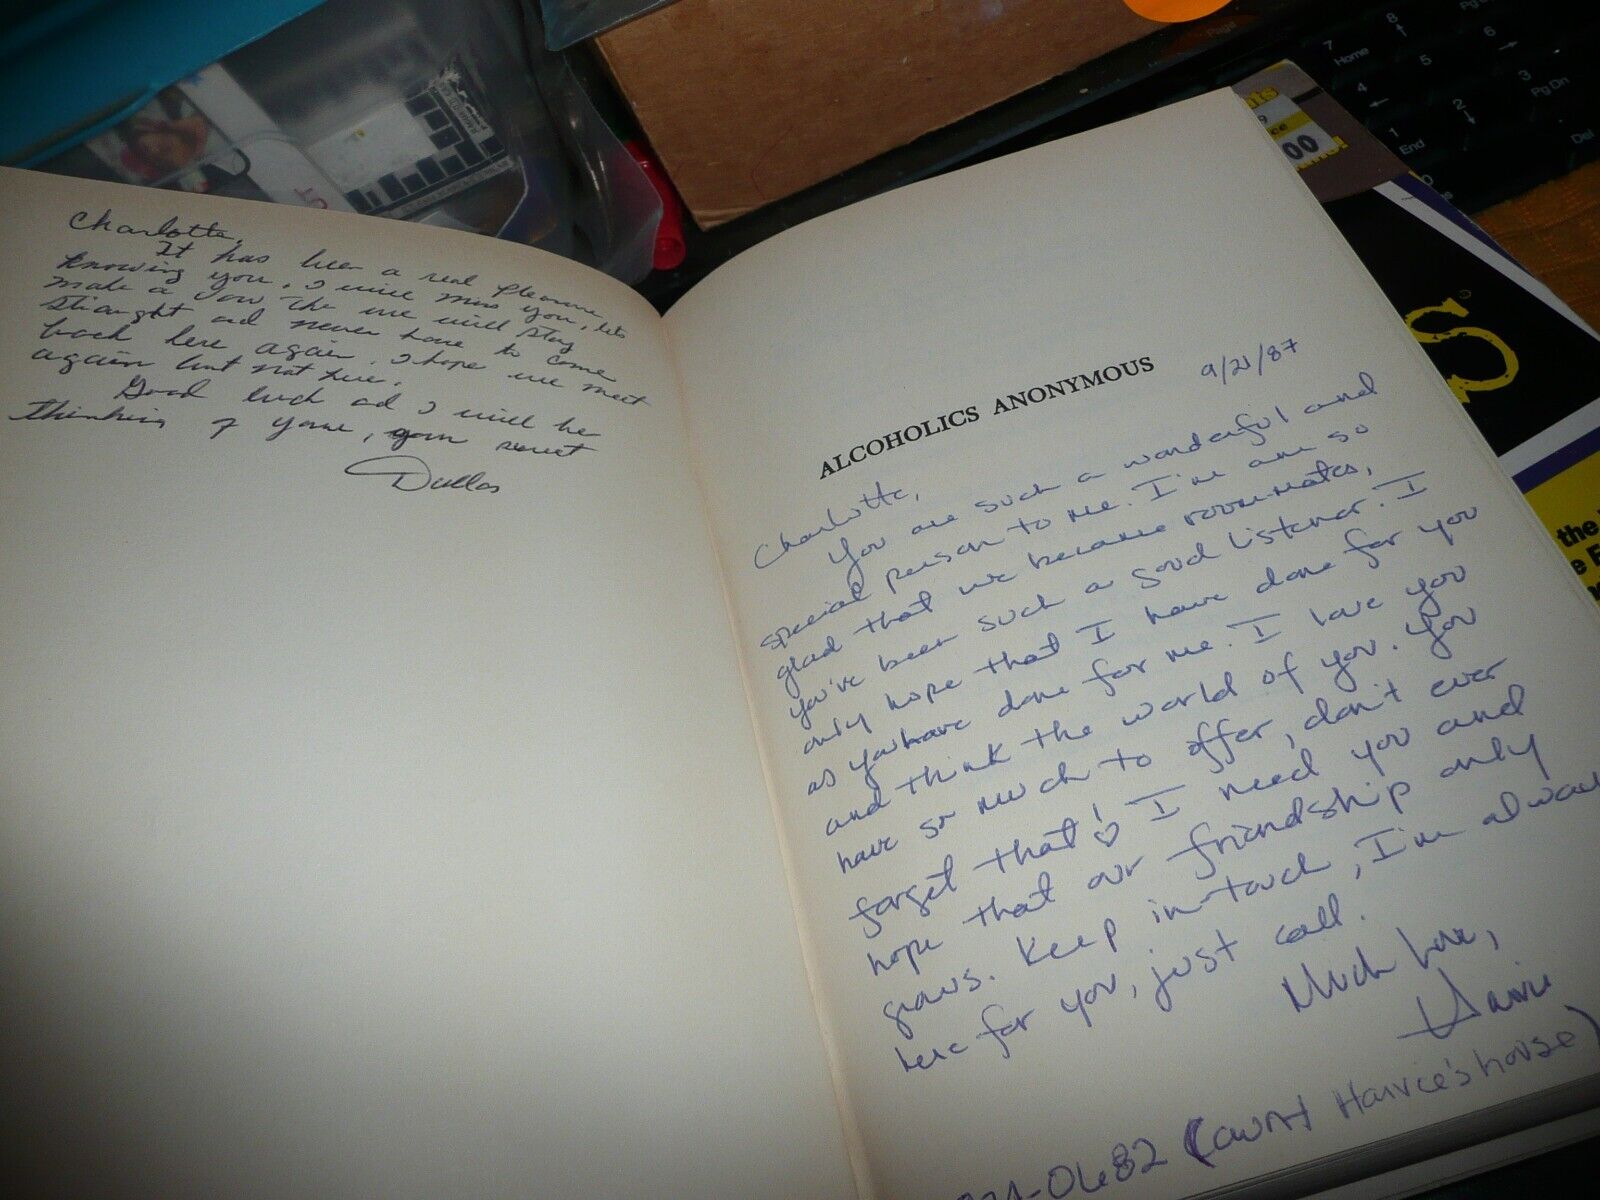 Charlotte,
It has been a real pleasure
knowing you, I will miss you, lets
make a vow the we will stay
straight and never have to come
back here again. I hope we meet
again but not here.
Good luck ad I will be
thinking of you, your secret
Dallas
ALCOHOLICS ANONYMOUS
9/21/87
Charlotte,
You are such a wonderful and
special person to me. I'm am so
glad that we became roommates,
you've been such a good listener. I
only hope that I have done for you
as you have done for me. I love you
and think the world of you. You
have so much to offer, don't ever
forget that! ♡ I need you and
hope that our friendship only
grows. Keep in-touch, I'm alway
here for you, just call.
Much Love,
-0682 (aunt Harvie's house)
7
Home
8
4
5
6
1
End
2
3
Pg Dn
Del
00
S
the